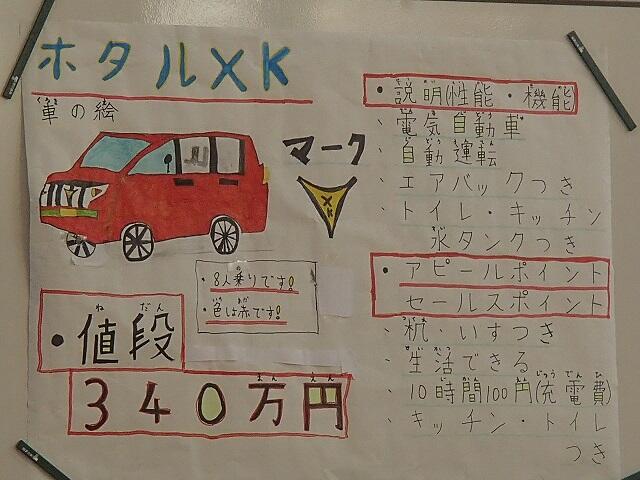 ホタルXK
車の絵
マーク
XK
・8人乗りです!
・色は赤です!
・値段
ねだん
340万円
まんえん
・説明(性能・機能)
、電気自動車
、自動運転
、エアバックつき
、トイレ・キッチン
水タンクつき
・アピールポイント
セールスポイント
、机・いすつき
、生活できる
、10時間100円(充電費)
じゅうでんひ
、キッチン・トイレ
つき